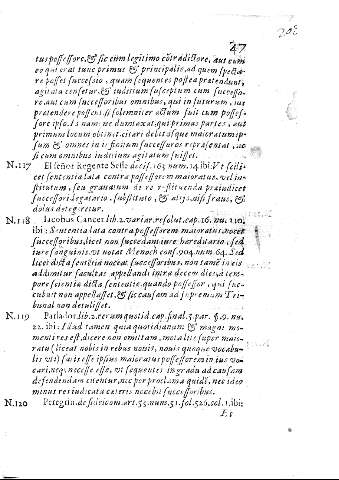 208
47
tus possessore, & sic cum legitimo cōtradictore, aut cum
eo qui erat tunc primus & principalis, ad quem specta-
re posset successio, quam sequentes postea pretendunt,
agitata censetur, & iuditium susceptum cum successo-
re, aut cum successoribus omnibus, qui in futurum, ius
pretendere possent si solemniter actum fuit cum posses-
sore ipso. Is nam ac qui primas partes, aut
primum locum obtinet, citari debet, isque maioratum ip-
sum & omnes in infinitum successuros representat, ac
si cum omnibus iuditium agitatum fuisset.
N.117 El señor Regente Sesse decis. 163 num. 14. ibi: Vt scili-
cet sententia lata contra possessorem maioratus, vel in-
stitutum, seu grauatum de re restituenda praiudicet
successori legatario, substituto, & alijs, nisi fraus, &
dolus detegeretur.
N.118 Iacobus Cancer. lib. 2. variar. resolut. cap. 16. nu. 110.
ibi: Sententia lata contra possessorem maioratus, nocet
successoribus, licet non succedant iure hereditario, sed
iure sanguinis, vt notat Menoch. conf. 904. num. 64. Sed
licet dicta sentētia noceat successoribus, non tamē in eis
adduntur facultas appellandi intra decem dies, à tem-
pore scientiæ dictæ sententiæ, quando possessor, qui suc-
cubuit non appellasset, & sic causam ad supremum Tri-
bunal non detulisset.
N.119 Parlador. lib. 2. rerum quotid. cap. final. 3. par. §. 9. nu.
22. ibi: Illud tamen quia quotidianum & magni mo-
menti res est, dicere non omittam, mota lite super maio-
ratu (liceat nobis in rebus nouis, nouis quoque vocabu-
lis vti) satis esse ipsum maioratus possessorem in ius vo-
cari, neque necesse esse, vt sequentes in gradu ad causam
defendendam citentur, nec per proclama quidē, nec ideo
minus res iudicata cæteris nocebit successoribus.
N.120 Peregrin. de fideicom. art. 53. num. 51. fol. 526. col. 1. ibi:
Et